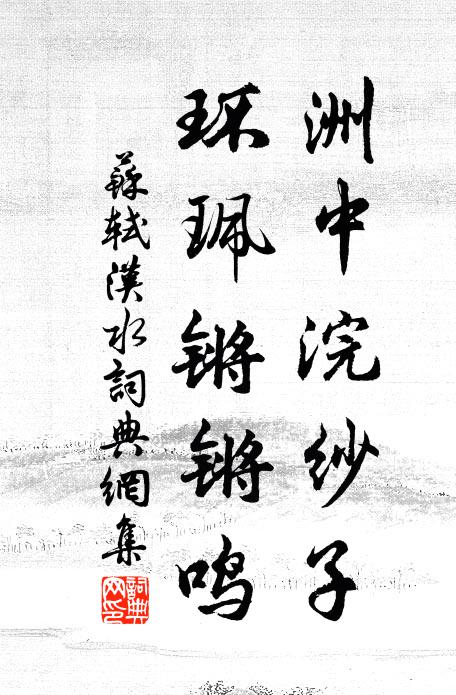 洲中浣纱子
环珮锵锵鸣
蘇軾漢水詞典網集
詞典网印